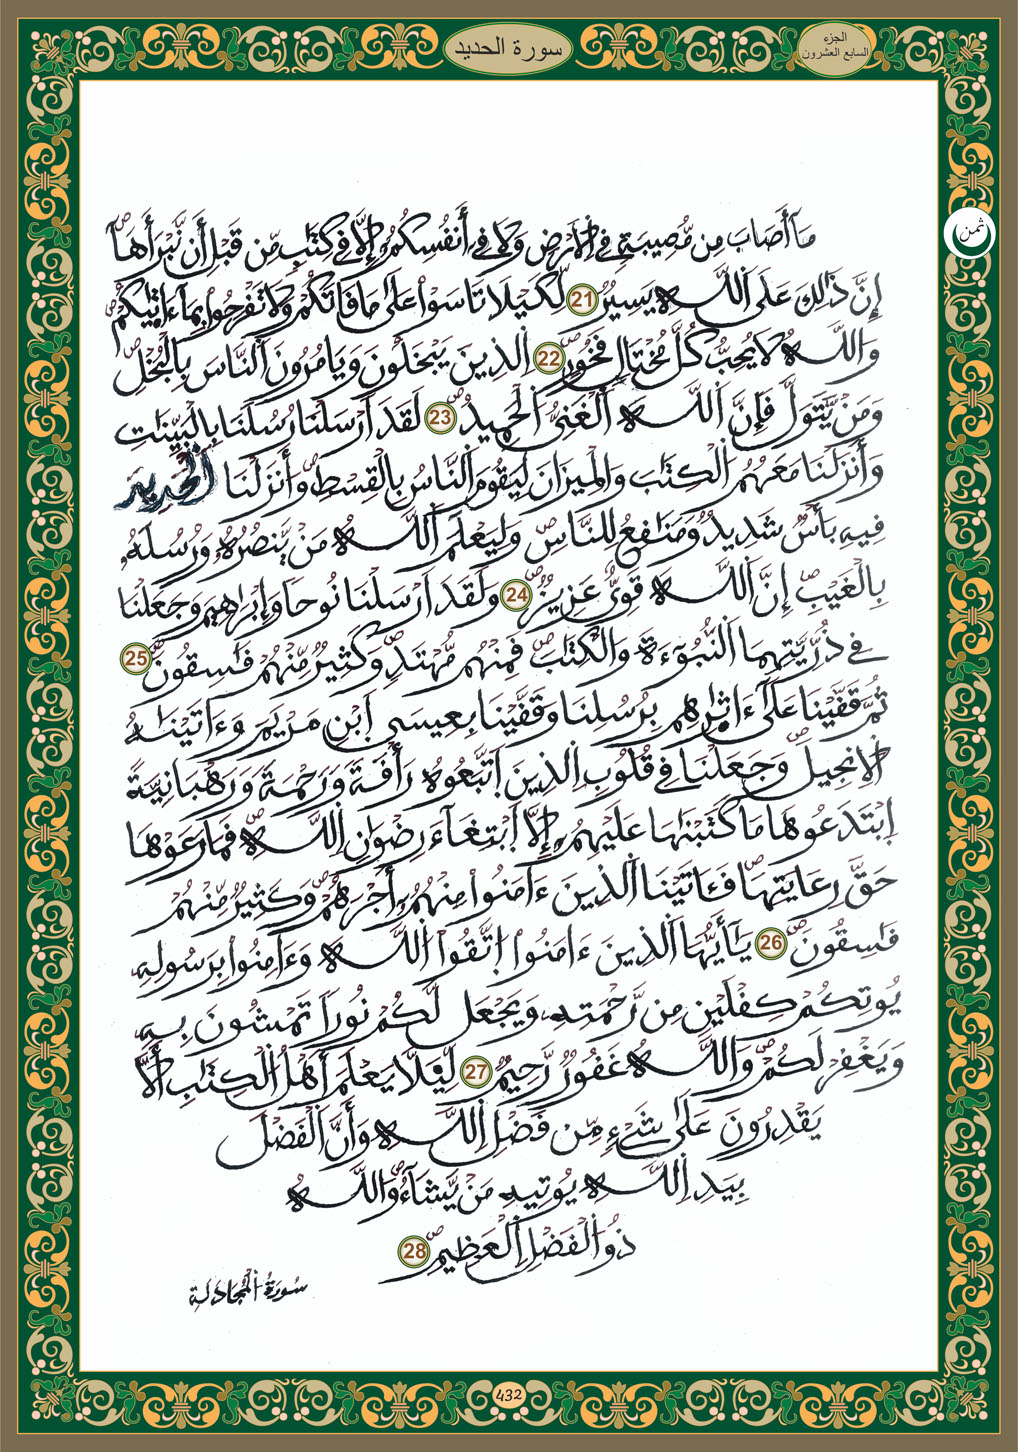 سورة الحديد
الجزء
السابع العشرون
ثمن
مَآ أَصَابَ مِن مُّصِيبَةٖ فِے اِ۬لَارْضِ وَلَا فِےٓ أَنفُسِكُمُۥٓ إِلَّا فِے كِتَٰبٖ مِّن قَبْلِ أَن نَّبْرَأَهَآ
إِنَّ ذَٰلِكَ عَلَى اَ۬للَّهِ يَسِيرٞ 21 لِّكَيْلَا تَاسَوْاْ عَلَىٰ مَا فَاتَكُمْ وَلَا تَفْرَحُواْ بِمَآ ءَات۪يٰكُمْ
وَاللَّهُ لَا يُحِبُّ كُلَّ مُخْتَالٖ فَخُورٍ 22 اِ۬لذِينَ يَبْخَلُونَ وَيَامُرُونَ اَ۬لنَّاسَ بِالْبُخْلِ
وَمَنْ يَّتَوَلَّ فَإِنَّ اَ۬للَّهَ اَ۬لْغَنِيُّ اُ۬لْحَمِيدُ 23 لَقَدَ اَرْسَلْنَا رُسُلَنَا بِالْبَيِّنَٰتِ
وَأَنزَلْنَا مَعَهُمُ اُ۬لْكِتَٰبَ وَالْمِيزَانَ لِيَقُومَ اَ۬لنَّاسُ بِالْقِسْطِ وَأَنزَلْنَا اَ۬لْحَدِيدَ
فِيهِ بَأْسٞ شَدِيدٞ وَمَنَٰفِعُ لِلنَّاسِ وَلِيَعْلَمَ اَ۬للَّهُ مَنْ يَّنصُرُهُۥ وَرُسُلَهُۥ
بِالْغَيْبِ إِنَّ اَ۬للَّهَ قَوِيٌّ عَزِيزٞ 24 وَلَقَدَ اَرْسَلْنَا نُوحاٗ وَإِبْرَٰهِيمَ وَجَعَلْنَا
فِے ذُرِّيَّتِهِمَا اَ۬لنُّبُوٓءَةَ وَالْكِتَٰبَ فَمِنْهُم مُّهْتَدٖ وَكَثِيرٞ مِّنْهُمْ فَٰسِقُونَ 25
ثُمَّ قَفَّيْنَا عَلَىٰٓ ءَاثٰ۪رِهِم بِرُسُلِنَا وَقَفَّيْنَا بِعِيسَى اَ۪بْنِ مَرْيَمَ وَءَاتَيْنَٰهُ
اُ۬لِانجِيلَ وَجَعَلْنَا فِے قُلُوبِ اِ۬لذِينَ اَ۪تَّبَعُوهُ رَأْفَةٗ وَرَحْمَةٗ وَرَهْبَانِيَّةً
اِ۪بْتَدَعُوهَا مَا كَتَبْنَٰهَا عَلَيْهِمُۥٓ إِلَّا اَ۪بْتِغَآءَ رِضْوَٰنِ اِ۬للَّهِ فَمَا رَعَوْهَا
حَقَّ رِعَايَتِهَا فَـَٔاتَيْنَا اَ۬لذِينَ ءَامَنُواْ مِنْهُمُۥٓ أَجْرَهُمْ وَكَثِيرٞ مِّنْهُمْ
فَٰسِقُونَ 26 يَٰٓأَيُّهَا اَ۬لذِينَ ءَامَنُواْ اُ۪تَّقُواْ اُ۬للَّهَ وَءَامِنُواْ بِرَسُولِهِۦ
يُوتِكُمْ كِفْلَيْنِ مِن رَّحْمَتِهِۦ وَيَجْعَل لَّكُمْ نُوراٗ تَمْشُونَ بِهِۦ
وَيَغْفِرْ لَكُمْ وَاللَّهُ غَفُورٞ رَّحِيمٞ 27 لِّيَلَّا يَعْلَمَ أَهْلُ اُ۬لْكِتَٰبِ أَلَّا
يَقْدِرُونَ عَلَىٰ شَےْءٖ مِّن فَضْلِ اِ۬للَّهِ وَأَنَّ اَ۬لْفَضْلَ
بِيَدِ اِ۬للَّهِ يُوتِيهِ مَنْ يَّشَآءُ وَاللَّهُ
ذُو اُ۬لْفَضْلِ اِ۬لْعَظِيمِ 28
سُورَةُ اُ۬لْمُجَادَلَةِ
432